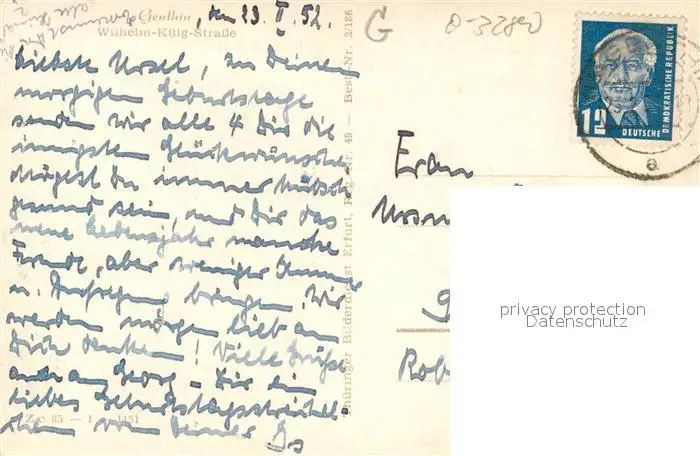 Genthin
Wilhelm-Külg-Straße
, den 23. II. 52.
Liebste Ursel, zu Deinem
morgigen Geburtstage
senden wir alle 4 Dir die
innigsten Glückwünsche
Mögest Du immer hübsch
gesund sein, und Dir das
neue Lebensjahr manche
Freude, aber weniger Kummer
u. Aufregung bringen. Wir
werden morgen lieb an
Dich denken! Viele Grüße
auch an Georg - Dir ein
liebes Geburtstagsstreichel-
chen von Deiner
Thüringer Bilderdienst Erfurt, Reg.-Nr. 49 — Bestell-Nr. 3/186
G
0-3280
DEUTSCHE
DEMOKRATISCHE REPUBLIK
a
Frau
Rob
privacy protection
Datenschutz